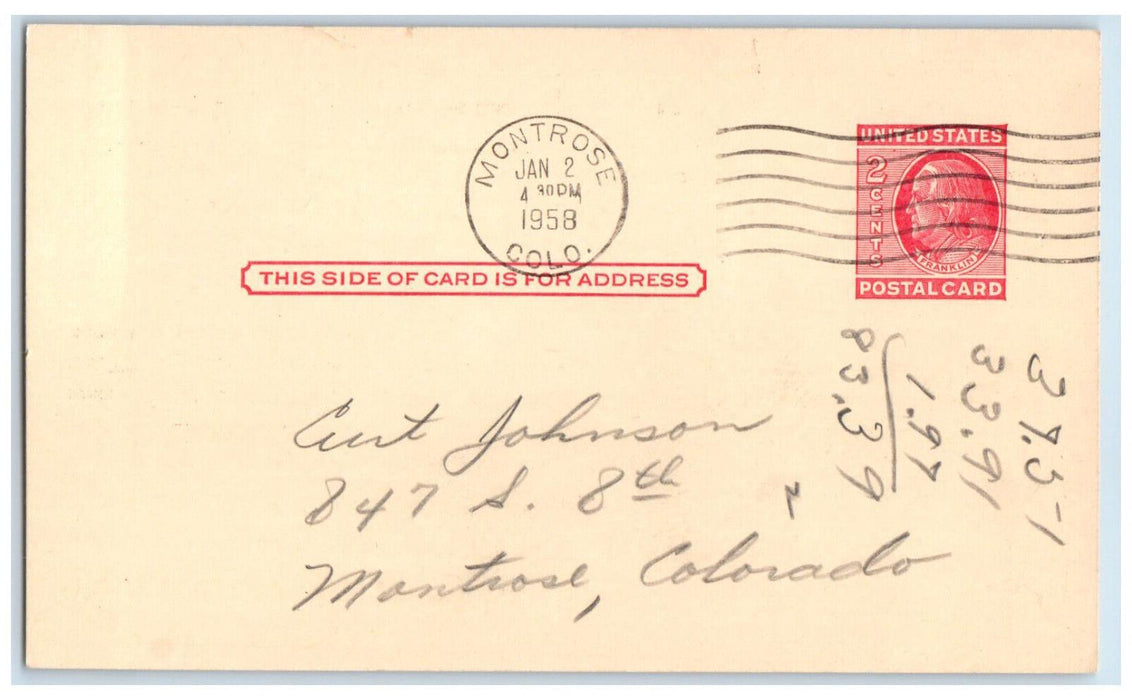 MONTROSE
JAN 2
4 30 PM
1958
COLO.
UNITED STATES
2 CENTS
FRANKLIN
POSTAL CARD
THIS SIDE OF CARD IS FOR ADDRESS
Curt Johnson
847 S. 8th
Montrose, Colorado
37.51
33.91
1.97